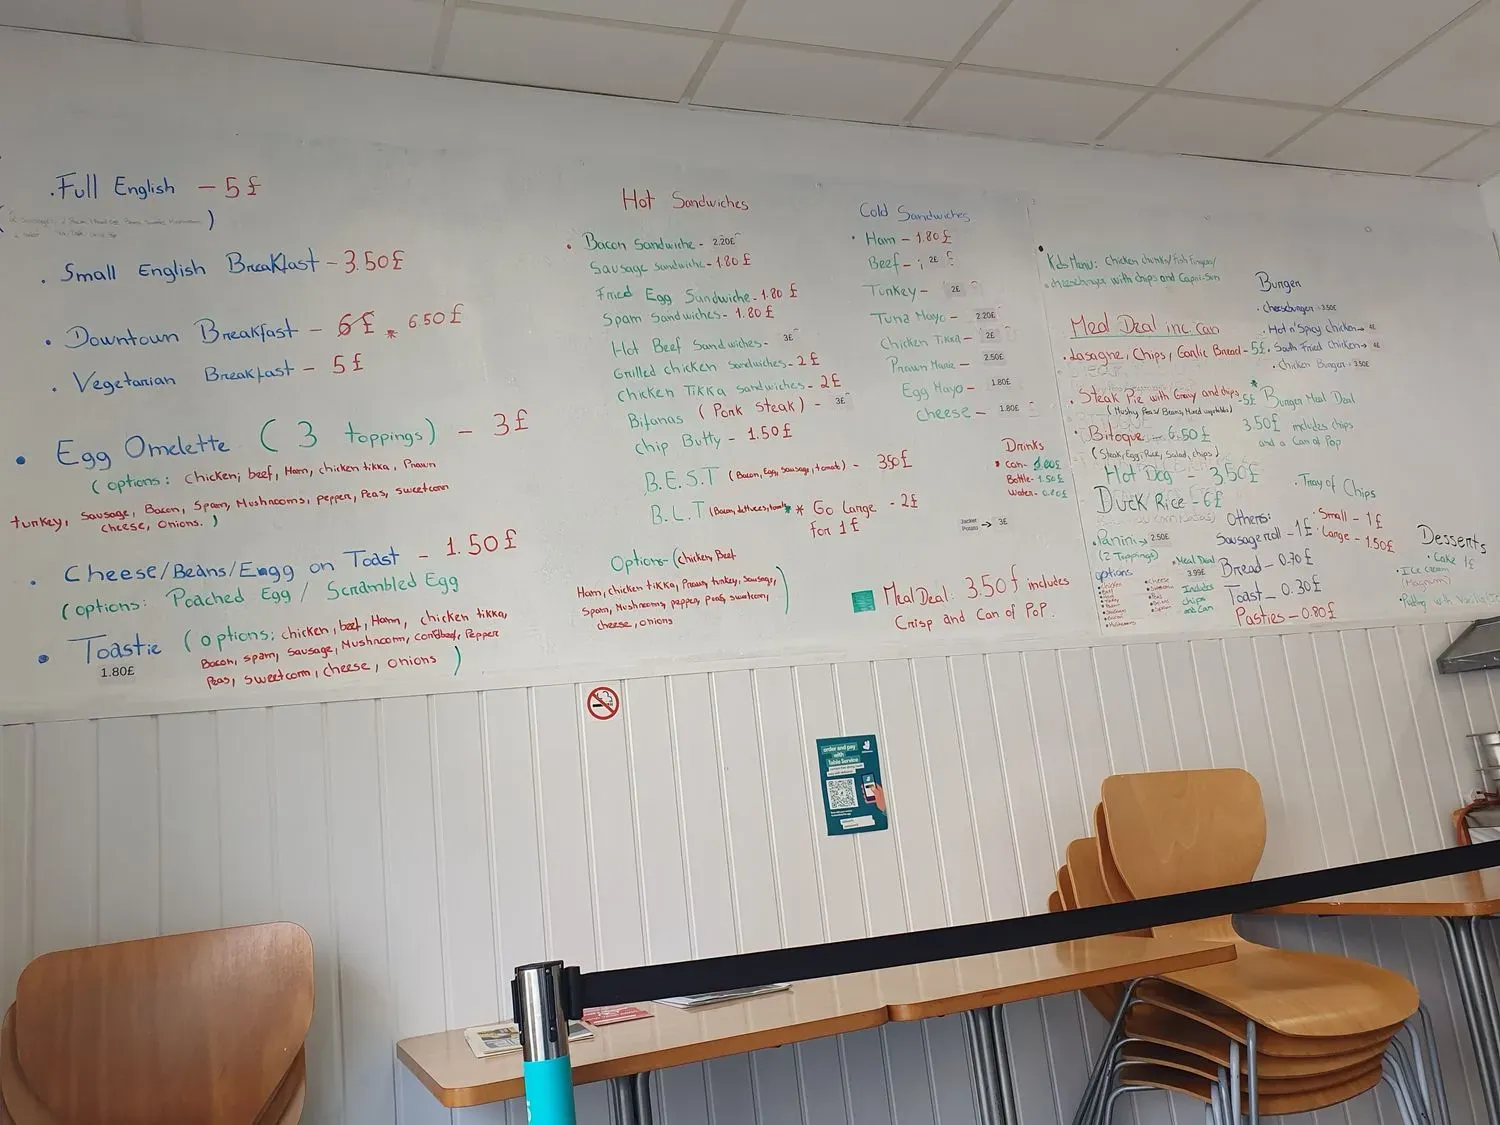 . Full English - 5£
. Small English Breakfast - 3.50£
. Downtown Breakfast - 6£ * 6.50£
. Vegetarian Breakfast - 5£
• Egg Omelette (3 toppings) - 3£
(options: chicken, beef, Ham, chicken tikka, Prawn
turkey, sausage, Bacon, Spam, Mushrooms, pepper, Peas, sweetcorn
cheese, onions.)
. Cheese/Beans/Egg on Toast - 1.50£
(options: Poached Egg / Scrambled Egg
• Toastie (options: chicken, beef, Ham, chicken tikka,
1.80£
Bacon, spam, sausage, Mushroom, corn beef, Pepper
Peas, sweetcorn, cheese, onions)
Hot Sandwiches
• Bacon Sandwiche - 2.20£
Sausage Sandwiche - 1.80£
Fried Egg Sandwiche - 1.80£
Spam Sandwiches - 1.80£
Hot Beef Sandwiches - 3£
Grilled chicken sandwiches - 2£
Chicken Tikka sandwiches - 2£
Bifanas (Pork Steak) - 3£
Chip Butty - 1.50£
B.E.S.T (Bacon, Egg, Sausage, tomato) - 3.50£
B.L.T (Bacon, lettuces, tomato) * Go Large - 2£
for 1£
Options - (chicken, Beef
Ham, chicken tikka, Prawn, turkey, sausage,
Spam, Mushrooms, pepper, Peas, sweetcorn,
cheese, onions)
Cold Sandwiches
• Ham - 1.80£
Beef - 2£
Turkey - 2£
Tuna Mayo - 2.20£
Chicken Tikka - 2£
Prawn Marie - 2.50£
Egg Mayo - 1.80£
Cheese - 1.80£
Drinks
• Can -
Bottle - 1.50£
Water - 0.80£
Jacket
Potato → 3£
Meal Deal: 3.50£ includes
Crisp and Can of Pop.
• Kids Menu: chicken chunks/Fish Fingers/
cheeseburger with chips and Capri-Sun
Meal Deal inc. Can
. Lasagne, Chips, Garlic Bread - 5£
. Steak Pie with Gravy and chips - 5£
(Mushy Peas/ Beans, Mixed vegetables)
• Bitoque - 6.50£
(Steak, Egg, Rice, Salad, chips)
Hot Dog - 3.50£
Duck Rice - 6£
. Panini → 2.50£
(2 Toppings)
options
• Cheese
• Mushrooms
• Meal Deal
3.99£
Includes
chips
and Can
Burger
• Cheeseburger - 3.50£
. Hot n' Spicy Chicken → 4£
. South Fried Chicken → 4£
• Chicken Burger - 3.50£
* Burger Meal Deal
3.50£ includes chips
and a Can of Pop
. Tray of Chips
• Small - 1£
• Large - 1.50£
Others:
Sausage roll - 1£
Bread - 0.70£
Toast - 0.30£
Pasties - 0.80£
Desserts
• Cake 1£
• Ice cream
(Magnum)
• Pudding with Vanilla
order and pay
with
Table Service